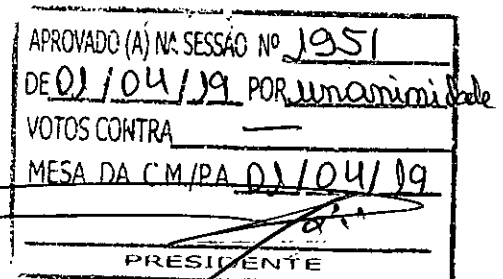 APROVADO (A) NA SESSÃO Nº 1951
DE 01 / 04 / 19 POR unanimidade
VOTOS CONTRA —
MESA DA CM/PA 01/04/19
PRESIDENTE